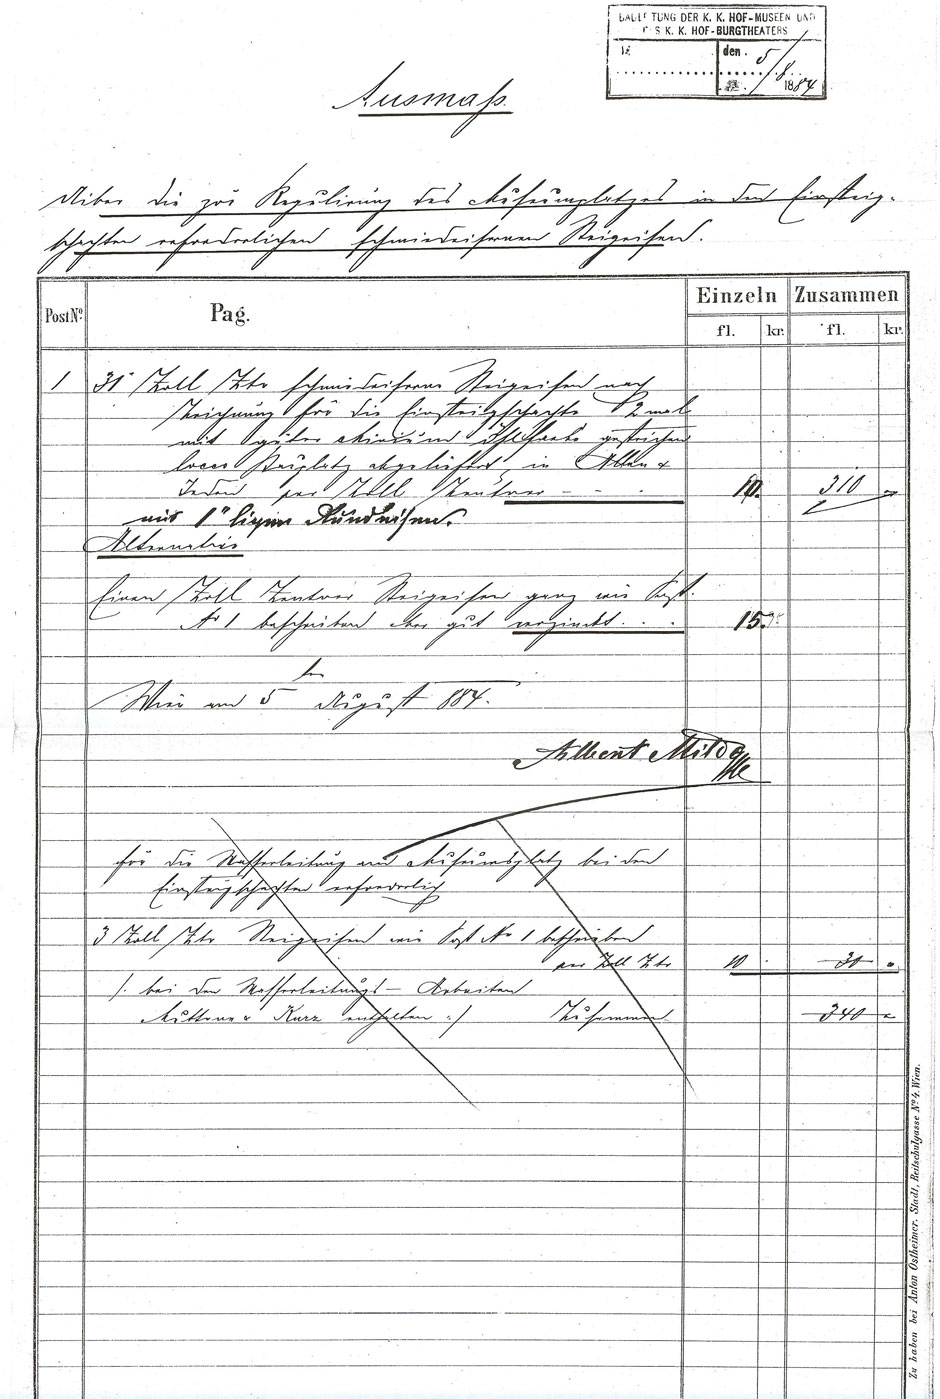 BAULEITUNG DER K. K. HOF-MUSEEN UND
DES K. K. HOF-BURGTHEATERS
den 5/8
1884
Ausmaß
Über die zur Regulirung des Museumplatzes in den Einsteig-
schachten erforderlichen schmiedeisernen Steigeisen.
Post No.
Pag.
Einzeln
Zusammen
fl.
kr.
fl.
kr.
1
31 Zoll Ztr schmiedeiserne Steigeisen nach
Zeichnung für die Einsteigschachte 2 mal
mit guter Minium Öhlfarbe gestrichen
loco Bauplatz abgeliefert, in Allen &
Jeden per Zoll Zentner
10.
310
mit 1" Rundeisen.
Alternativ
Einen Zoll Zentner Steigeisen ganz wie Post
No 1 beschrieben aber gut verzinkt
15.
Wien am 5 ten August 884.
Albert Milde
für die Wasserleitung am Museumsplatz bei den
Einsteigschachten erforderlich
3 Zoll Ztr Steigeisen wie Post No 1 beschrieben
per Zoll Ztr
10
30
/: bei den Wasserleitungs- Arbeiten
Kurz enthalten :/
Zusammen
340
Zu haben bei Anton Ostheimer. Stadt, Reitschulgasse No. 4. Wien.